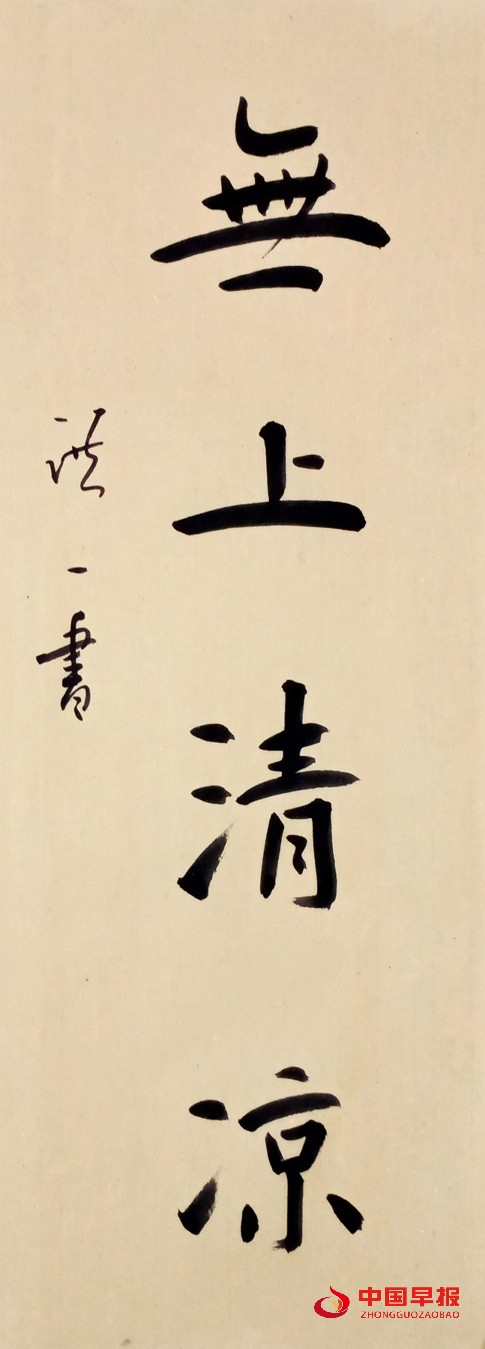 無上清凉
一書
中国早报
ZHONGGUOZAOBAO